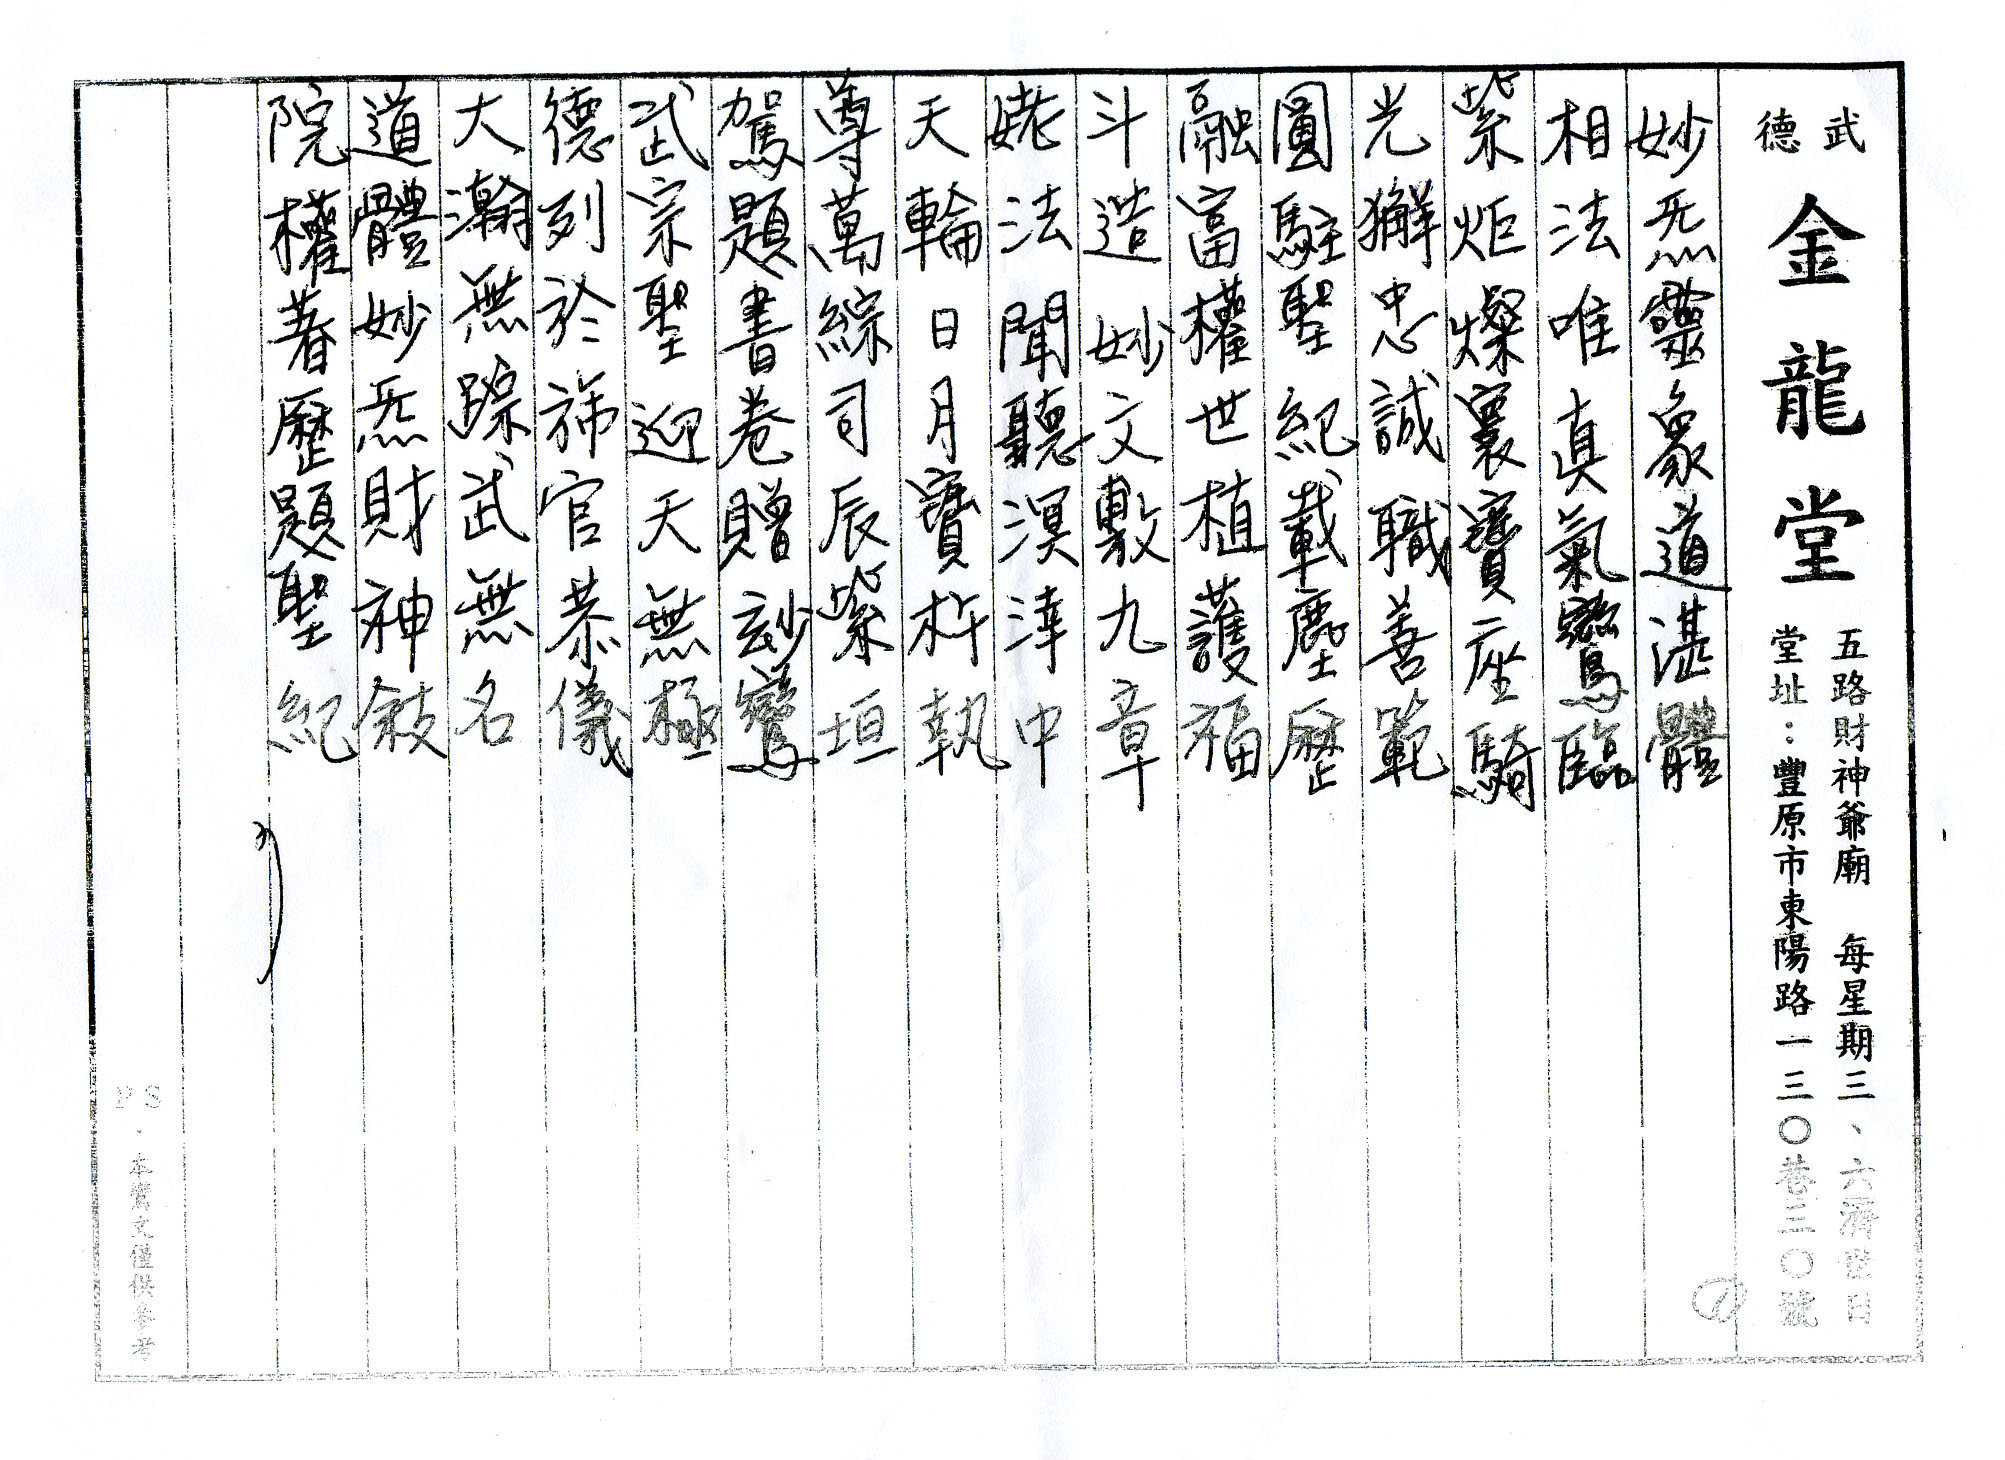 武德
金龍堂
五路財神爺廟　每星期三、六濟世日
堂址：豐原市東陽路一三〇巷三〇號
妙炁靈象道湛體
相法唯真氣鸞臨
紫炬燦寰寶座騎
光獬忠誠職善範
圓駐聖紀載塵歷
融富權世植護福
斗造妙文敷九章
姥法聞聽溟涬中
天輪日月寶杵執
尊萬綜司辰紫垣
駕題書卷贈玅鸞
武宗聖迎天無極
德列於旆官恭儀
大瀚無踪武無名
道體妙炁財神敍
院權著歷題聖紀
①
PS．本鸞文僅供參考